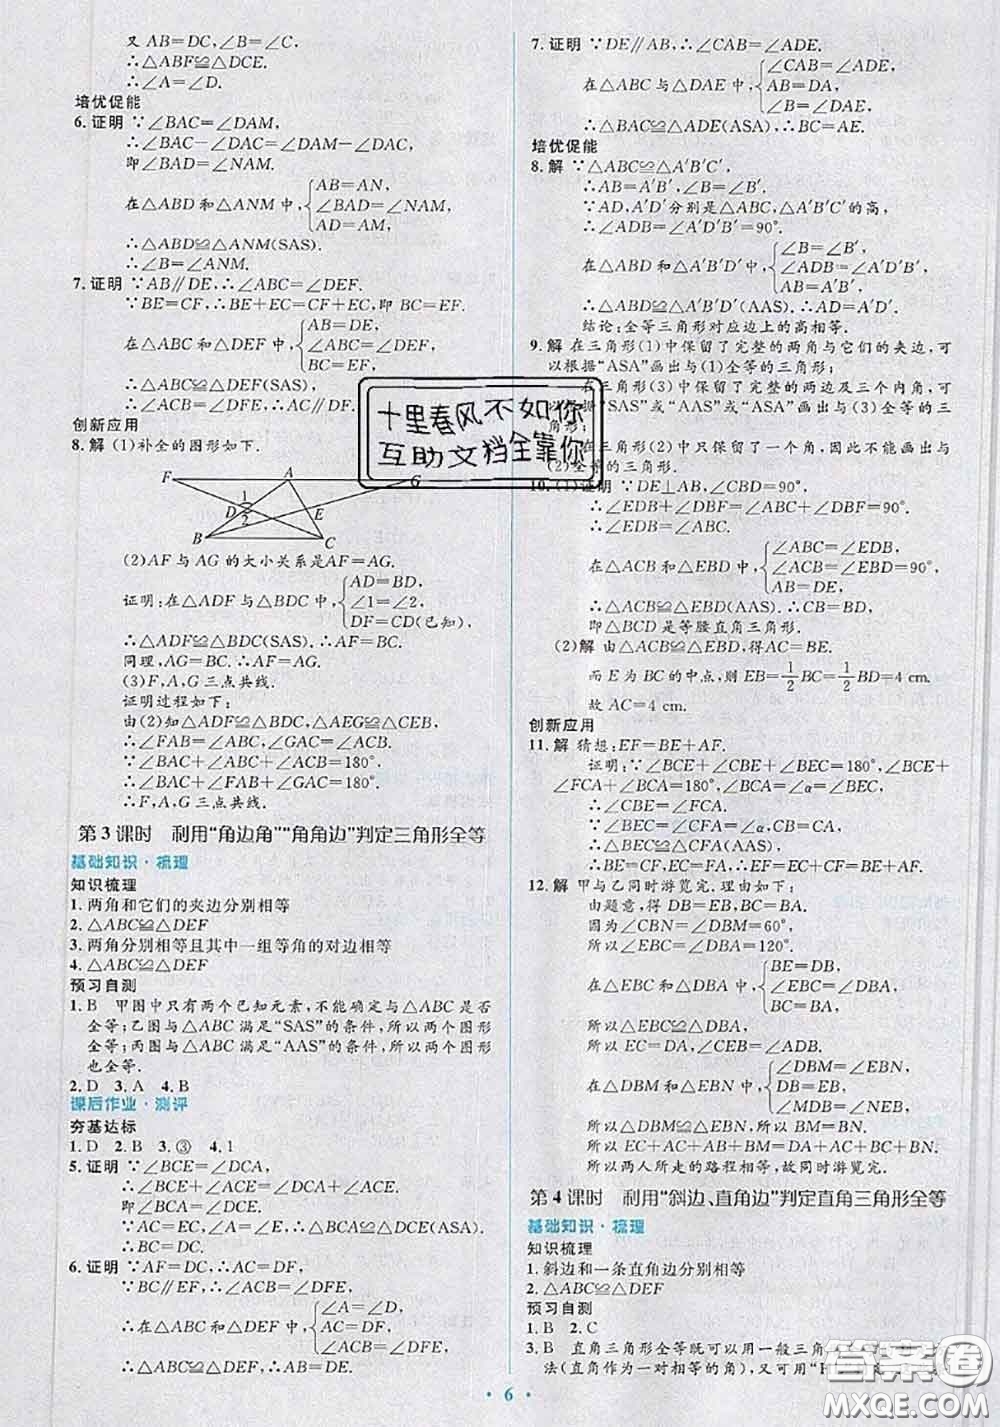 又 AB=DC,∠B=∠C,
∴△ABF≌△DCE.
∴∠A=∠D.
培优促能
6.证明 ∵∠BAC=∠DAM,
∴∠BAC-∠DAC=∠DAM-∠DAC,
即∠BAD=∠NAM.
在△ABD 和△ANM 中,{AB=AN,
∠BAD=∠NAM,
AD=AM,
∴△ABD≌△ANM(SAS).
∴∠B=∠ANM.
7.证明 ∵AB∥DE,∴∠ABC=∠DEF.
∵BE=CF,∴BE+EC=CF+EC,即 BC=EF.
在△ABC 和△DEF 中,{AB=DE,
∠ABC=∠DEF,
BC=EF,
∴△ABC≌△DEF(SAS),
∴∠ACB=∠DFE,∴AC∥DF.
创新应用
8.解 (1)补全的图形如下.
F A G
D 1 2 E
B C
(2)AF 与 AG 的大小关系是AF=AG.
证明:在△ADF 与△BDC 中,{AD=BD,
∠1=∠2,
DF=CD(已知),
∴△ADF≌△BDC(SAS).∴AF=BC.
同理,AG=BC.∴AF=AG.
(3)F,A,G 三点共线.
证明过程如下:
由(2)知△ADF≌△BDC,△AEG≌△CEB,
∴∠FAB=∠ABC,∠GAC=∠ACB.
∵∠BAC+∠ABC+∠ACB=180°,
∴∠BAC+∠FAB+∠GAC=180°.
∴F,A,G 三点共线.
第 3 课时 利用“角边角”“角角边”判定三角形全等
基础知识·梳理
知识梳理
1.两角和它们的夹边分别相等
2.△ABC≌△DEF
3.两角分别相等且其中一组等角的对边相等
4.△ABC≌△DEF
预习自测
1.B 甲图中只有两个已知元素,不能确定与△ABC 是否
全等;乙图与△ABC 满足“SAS”的条件,所以两个图形
全等;丙图与△ABC 满足“AAS”的条件,所以两个图形
也全等.
2.D 3.A 4.B
课后作业·测评
夯基达标
1.D 2.B 3.③ 4.1
5.证明 ∵∠BCE=∠DCA,
∴∠BCE+∠ACE=∠DCA+∠ACE,
即∠BCA=∠DCE.
∵AC=EC,∠A=∠E,∴△BCA≌△DCE(ASA).
∴BC=DC.
6.证明 ∵AF=DC,∴AC=DF.
∵BC∥EF,∴∠ACB=∠DFE,
∴在△ABC 和△DEF 中,{∠A=∠D,
AC=DF,
∠ACB=∠DFE,
∴△ABC≌△DEF,∴AB=DE.
7.证明 ∵DE∥AB,∴∠CAB=∠ADE.
在△ABC 与△DAE 中,{∠CAB=∠ADE,
AB=DA,
∠B=∠DAE,
∴△ABC≌△DAE(ASA),∴BC=AE.
培优促能
8.解 ∵△ABC≌△A′B′C′,
∴AB=A′B′,∠B=∠B′.
∵AD,A′D′分别是△ABC,△A′B′C′的高,
∴∠ADB=∠A′D′B′=90°.
在△ABD 和△A′B′D′中,{∠B=∠B′,
∠ADB=∠A′D′B′,
AB=A′B′,
∴△ABD≌△A′B′D′(AAS).∴AD=A′D′.
结论:全等三角形对应边上的高相等.
9.解 在三角形(1)中保留了完整的两角与它们的夹边,可
以根据“ASA”画出与(1)全等的三角形;
在三角形(3)中保留了完整的两边及三个内角,可
以“SAS”或“AAS”或“ASA”画出与(3)全等的三
角形;
在三角形(2)中只保留了一个角,因此不能画出与
(2)全等的三角形.
10.(1)证明 ∵DE⊥AB,∠CBD=90°,
∴∠EDB+∠DBF=∠ABC+∠DBF=90°.
∴∠EDB=∠ABC.
在△ACB 和△EBD 中,{∠ABC=∠EDB,
∠ACB=∠EBD,
AB=ED,
∴△ACB≌△EBD(AAS).∴CB=BD,
即△BCD 是等腰直角三角形.
(2)解 由△ACB≌△EBD,得AC=BE.
而 E 为 BC 的中点,则 EB=1/2BC=1/2BD=4 cm.
故 AC=4 cm.
创新应用
11.解 猜想:EF=BE+AF.
证明:∵∠BCE+∠CBE+∠BEC=180°,∠BCE
+∠FCA+∠BCA=180°,∠BCA=∠α=∠BEC,
∴∠CBE=∠FCA.
∵BC=CA,∠BEC=∠CFA,∴△BEC≌△CFA.
∴BE=FC,EC=FA,∴EF=EC+CF=FA+BE.
12.解 甲与乙同时游览完.理由如下:
由题意,得 DB=EB,BC=AB.
因为∠CBN=∠DBM=60°,
所以∠EBC=∠DBA=120°.
在△EBC 和△DBA 中,{BE=DB,
∠EBC=∠DBA,
BC=BA,
所以△EBC≌△DBA.
所以 EC=DA,∠CEB=∠ADB.
在△DBM 和△EBN 中,{∠DBM=∠EBN,
DB=EB,
∠MDB=∠NEB,
所以△DBM≌△EBN,所以 BM=BN.
所以 EC+AC+AB+BM=DA+AC+BC+BN,
所以两人所走的路程相等,故同时游览完.
第 4 课时 利用“斜边、直角边”判定直角三角形全等
基础知识·梳理
知识梳理
1.斜边和一条直角边分别相等
2.△ABC≌△DEF
预习自测
1.B 2.C
3.B 直角三角形全等既可以用一般三角形
法(直角作为一对相等的角),又可用“H
· 6 ·
十里春风不如你
互助文档全靠你
答案圈
MXQE.COM